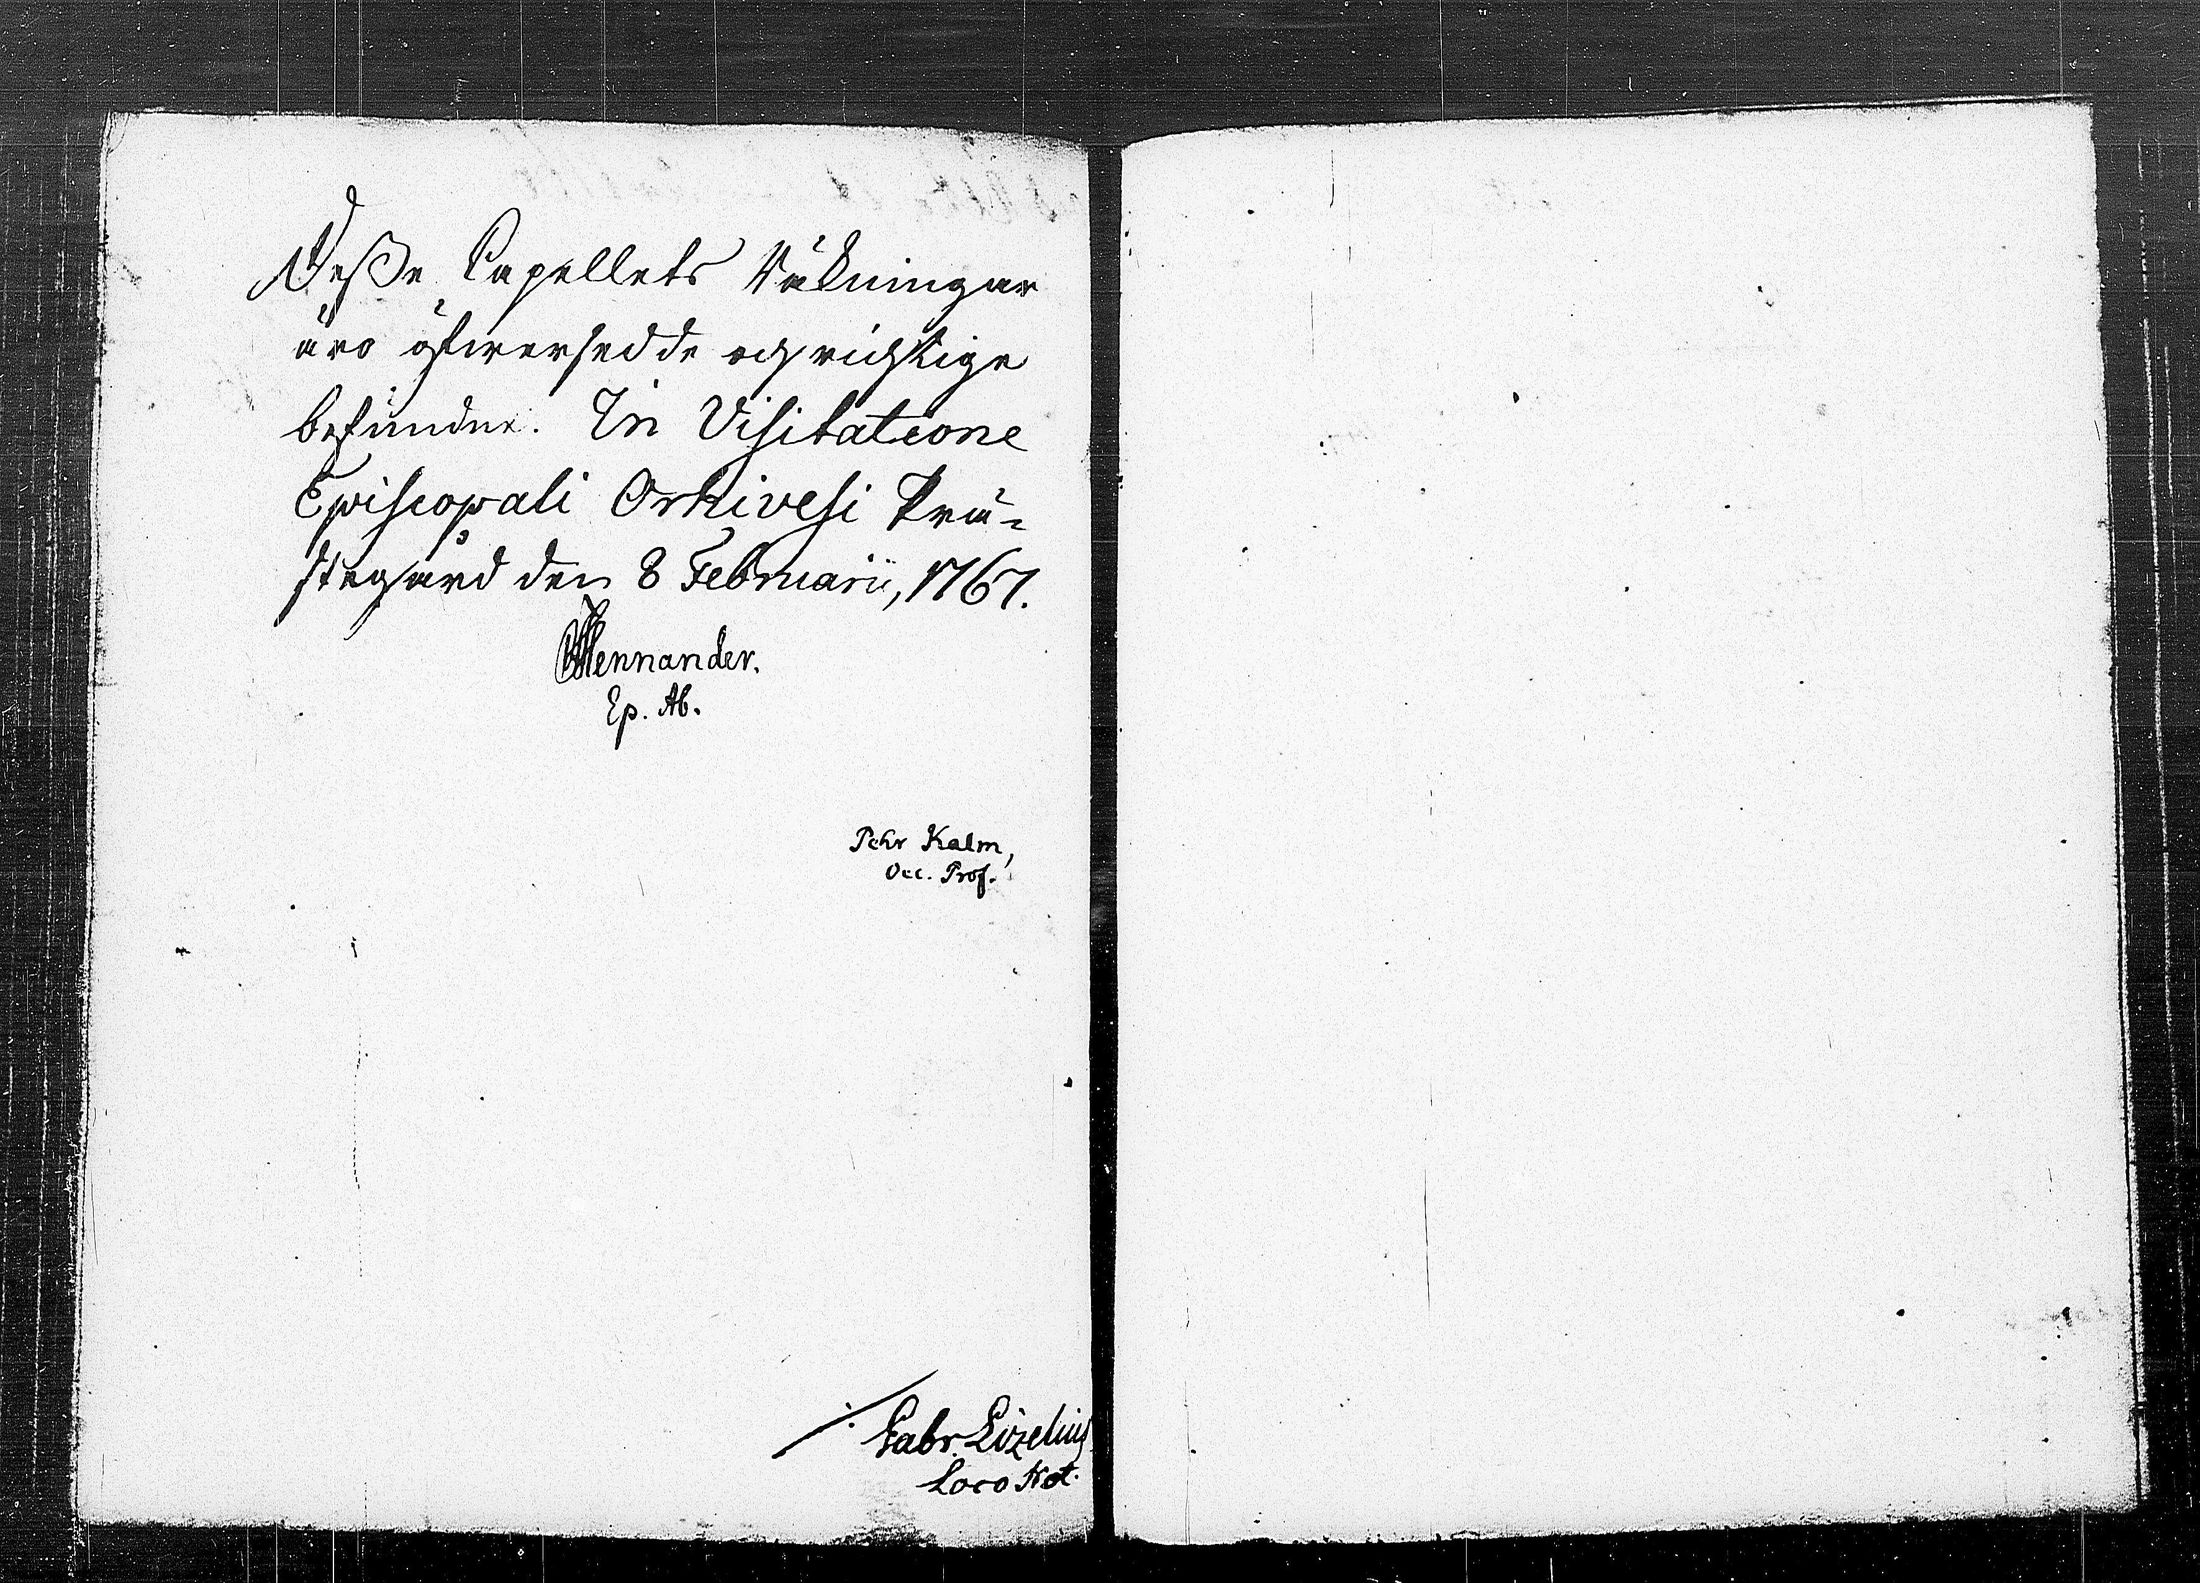 Deße Capellets Räkningar
äro öfwersedde och richtige
befundne. In Visitatione
Episcopali Orhivesi Prä-
stegård den 8 Februarii, 1767.
CFMennander.
Ep. Ab.
Pehr Kalm,
Oec. Prof.
Gabr. Lizelius
Loco Not.